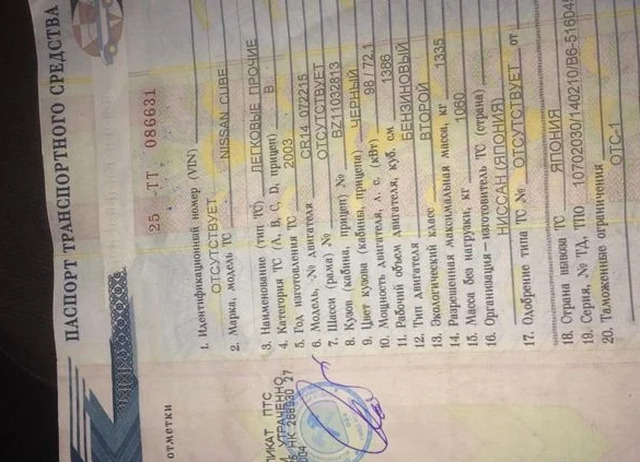 ПАСПОРТ ТРАНСПОРТНОГО СРЕДСТВА
25 ТТ 086631
1. Идентификационный номер (VIN)
ОТСУТСТВУЕТ
2. Марка, модель ТС NISSAN CUBE
3. Наименование (тип ТС) ЛЕГКОВЫЕ ПРОЧИЕ
4. Категория ТС (A, B, C, D, прицеп) B
5. Год изготовления ТС 2003
6. Модель, № двигателя CR14 072215
7. Шасси (рама) № ОТСУТСТВУЕТ
8. Кузов (кабина, прицеп) № BZ11032813
9. Цвет кузова (кабины, прицепа) ЧЕРНЫЙ
10. Мощность двигателя, л. с. (кВт) 98 / 72,1
11. Рабочий объем двигателя, куб. см 1386
12. Тип двигателя БЕНЗИНОВЫЙ
13. Экологический класс ВТОРОЙ
14. Разрешенная максимальная масса, кг 1335
15. Масса без нагрузки, кг 1060
16. Организация—изготовитель ТС (страна)
НИССАН (ЯПОНИЯ)
17. Одобрение типа ТС № ОТСУТСТВУЕТ от
18. Страна вывоза ТС ЯПОНИЯ
19. Серия, № ТД, ТПО 10702030/140210/В6-516045
20. Таможенные ограничения ОТС-1
отметки
ПТС
УТРАЧЕННО